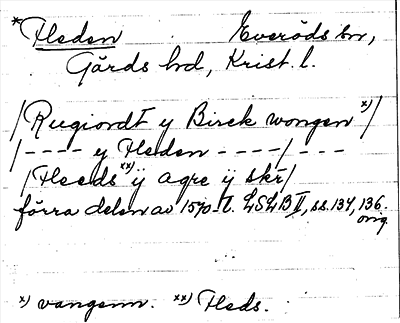 *Heden Everöds sn,
Gärds hd, Krist. l.
/Rugiordt y Birek wongen x)/
/---- y Heden ----/ ---
/Heeds xx) ij agre ij skr/
förra delen av 1570-t. LSLB II, ss. 134, 136.
orig.
x) vangenn. xx) Heds.